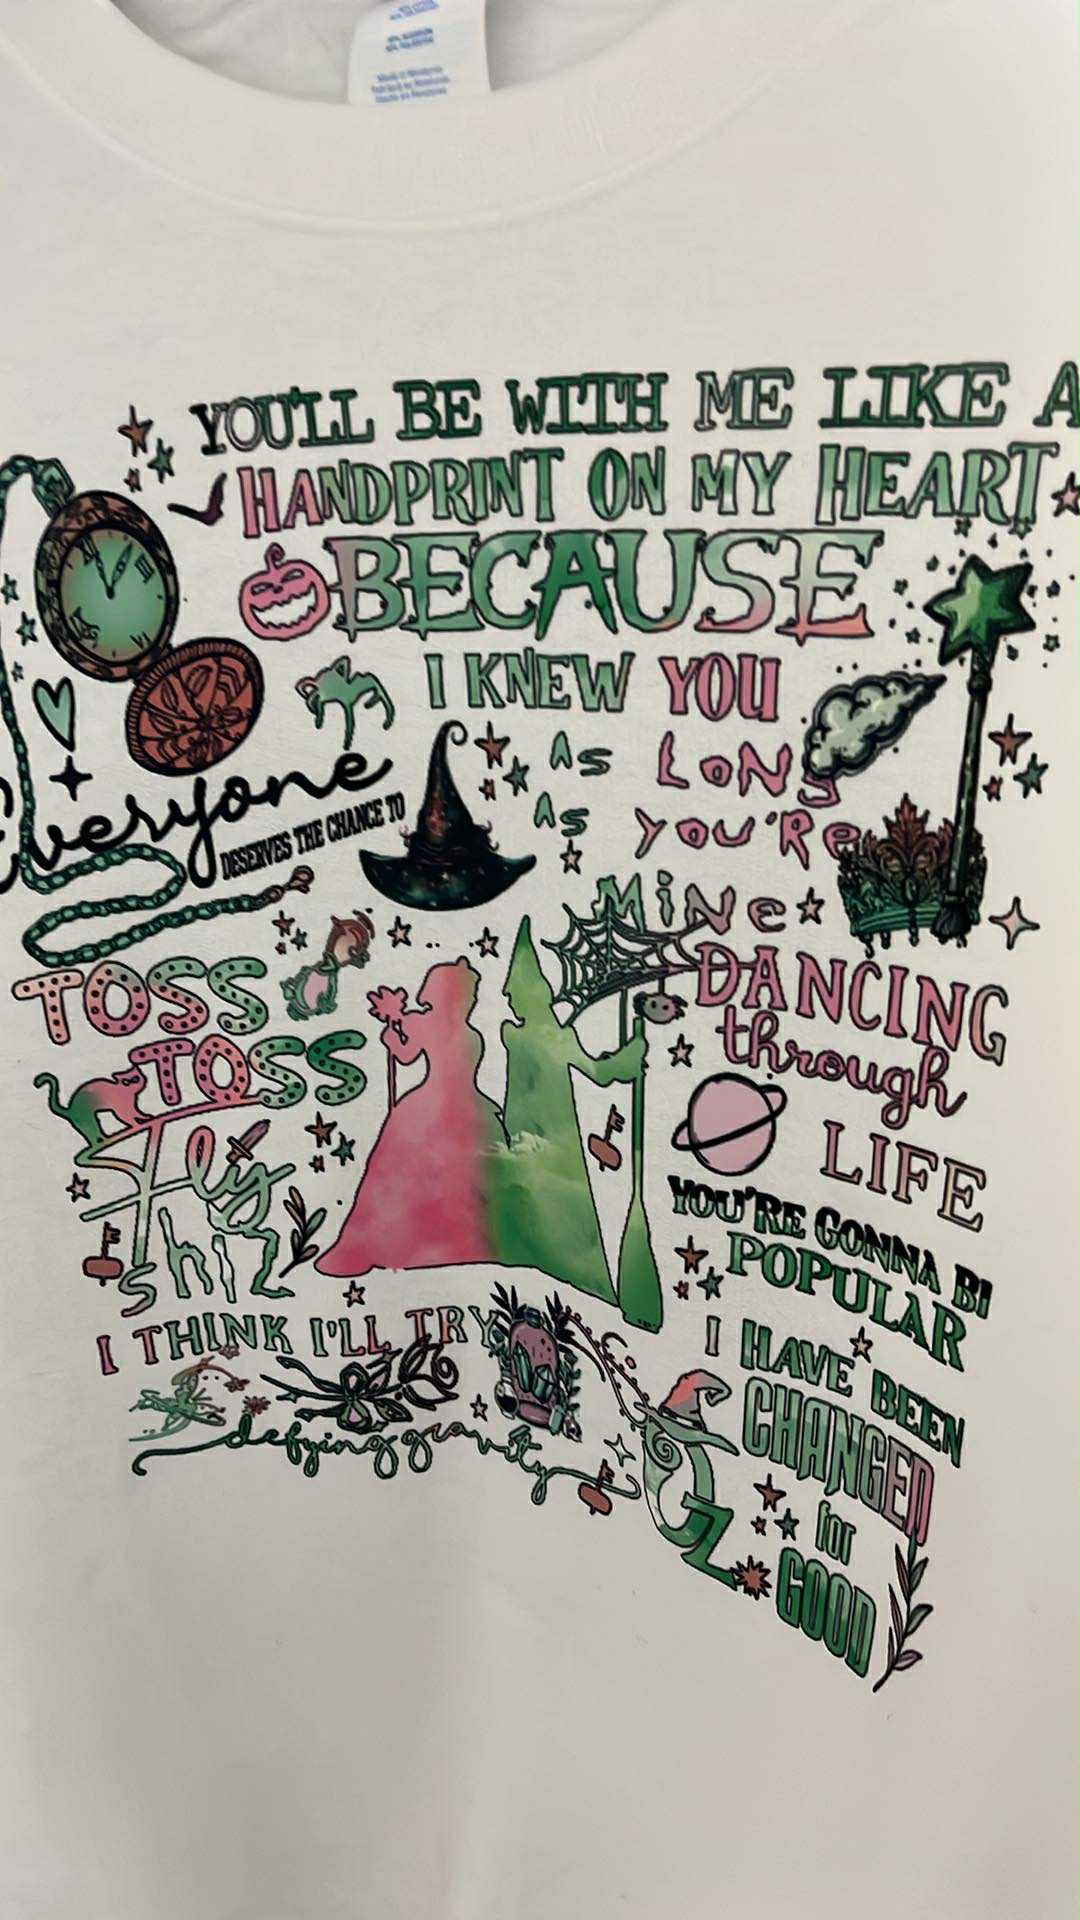 YOU'LL BE WITH ME LIKE A
HANDPRINT ON MY HEART
BECAUSE
I KNEW YOU
As LONg
As YOU'Re
MiNe
Everyone
DESERVES THE CHANCE TO
Fly
TOSS
TOSS
shiz
DANCING
through
LIFE
YOU'RE GONNA BE
POPULAR
I THINK I'LL TRY
defying gravity
OZ
I HAVE BEEN
CHANGED
for
GOOD